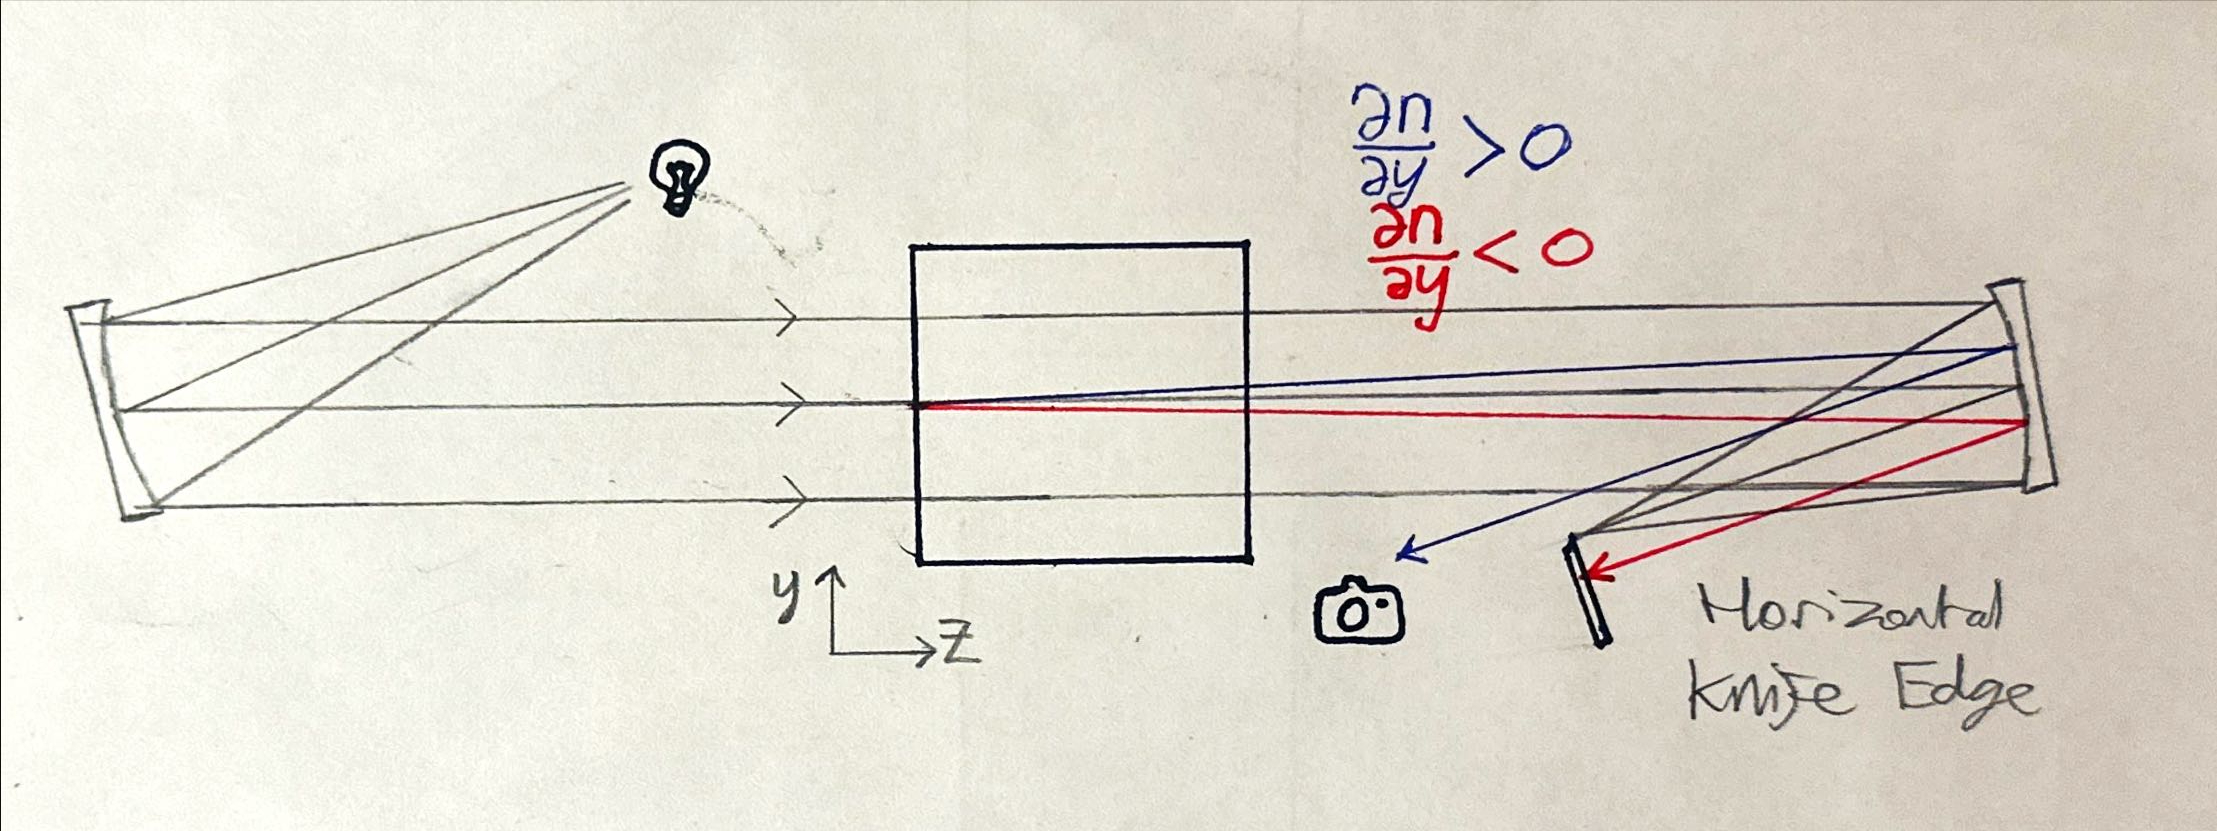 ∂n/∂y > 0
∂n/∂y < 0
y
z
Horizontal
Knife Edge